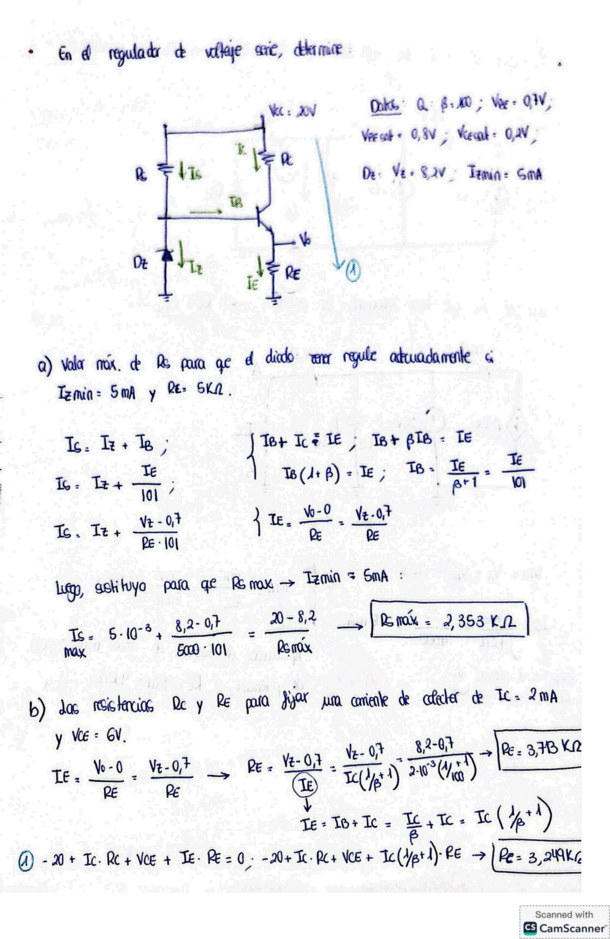 • En el regulador de voltaje serie, determine:
Vcc = 20V
Datos: Q: β=100; VBE = 0,7V;
VBEsat = 0,8V; VCEsat = 0,2V;
Dz: Vz = 8,2V; Izmin = 5mA
Rs
Is
Ic
Rc
IB
Vo
Dz
Iz
IE
RE
①
a) Valor máx. de Rs para qe el diodo zener regule adecuadamente si
Izmin = 5mA y RE = 5KΩ.
Is = Iz + IB ;
{ IB + Ic = IE ; IB + βIB = IE
Is = Iz + IE/101 ;
IB(1+β) = IE ; IB = IE/(β+1) = IE/101
Is = Iz + (Vz-0,7)/(RE·101)
{ IE = (Vo-0)/RE = (Vz-0,7)/RE
Luego, sustituyo para qe Rs max → Izmin = 5mA :
Is max = 5·10⁻³ + (8,2-0,7)/(5000·101) = (20-8,2)/Rsmáx → Rsmáx = 2,353 KΩ
b) Las resistencias Rc y RE para fijar una corriente de colector de Ic = 2mA
y VCE = 6V.
IE = (Vo-0)/RE = (Vz-0,7)/RE → RE = (Vz-0,7)/IE = (Vz-0,7)/(Ic(1/β+1)) = (8,2-0,7)/(2·10⁻³(1/100+1)) → RE = 3,713 KΩ
IE = IB + Ic = Ic/β + Ic = Ic(1/β+1)
① -20 + Ic·Rc + VCE + IE·RE = 0; -20 + Ic·Rc + VCE + Ic(1/β+1)·RE → Rc = 3,249KΩ
Scanned with
CS CamScanner